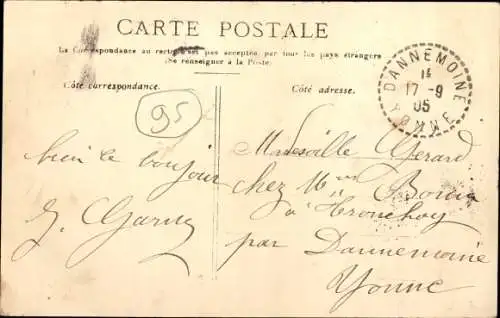 CARTE POSTALE
La Correspondance au recto n'est pas acceptée par tous les pays étrangers
(Se renseigner à la Poste)
Côté correspondance.
Côté adresse.
DANNEMOINE
YONNE
17 -9
05
95
bien le bonjour
Mademoiselle Gerard
chez Mr
à Tronchoy
par Dannemoine
Yonne